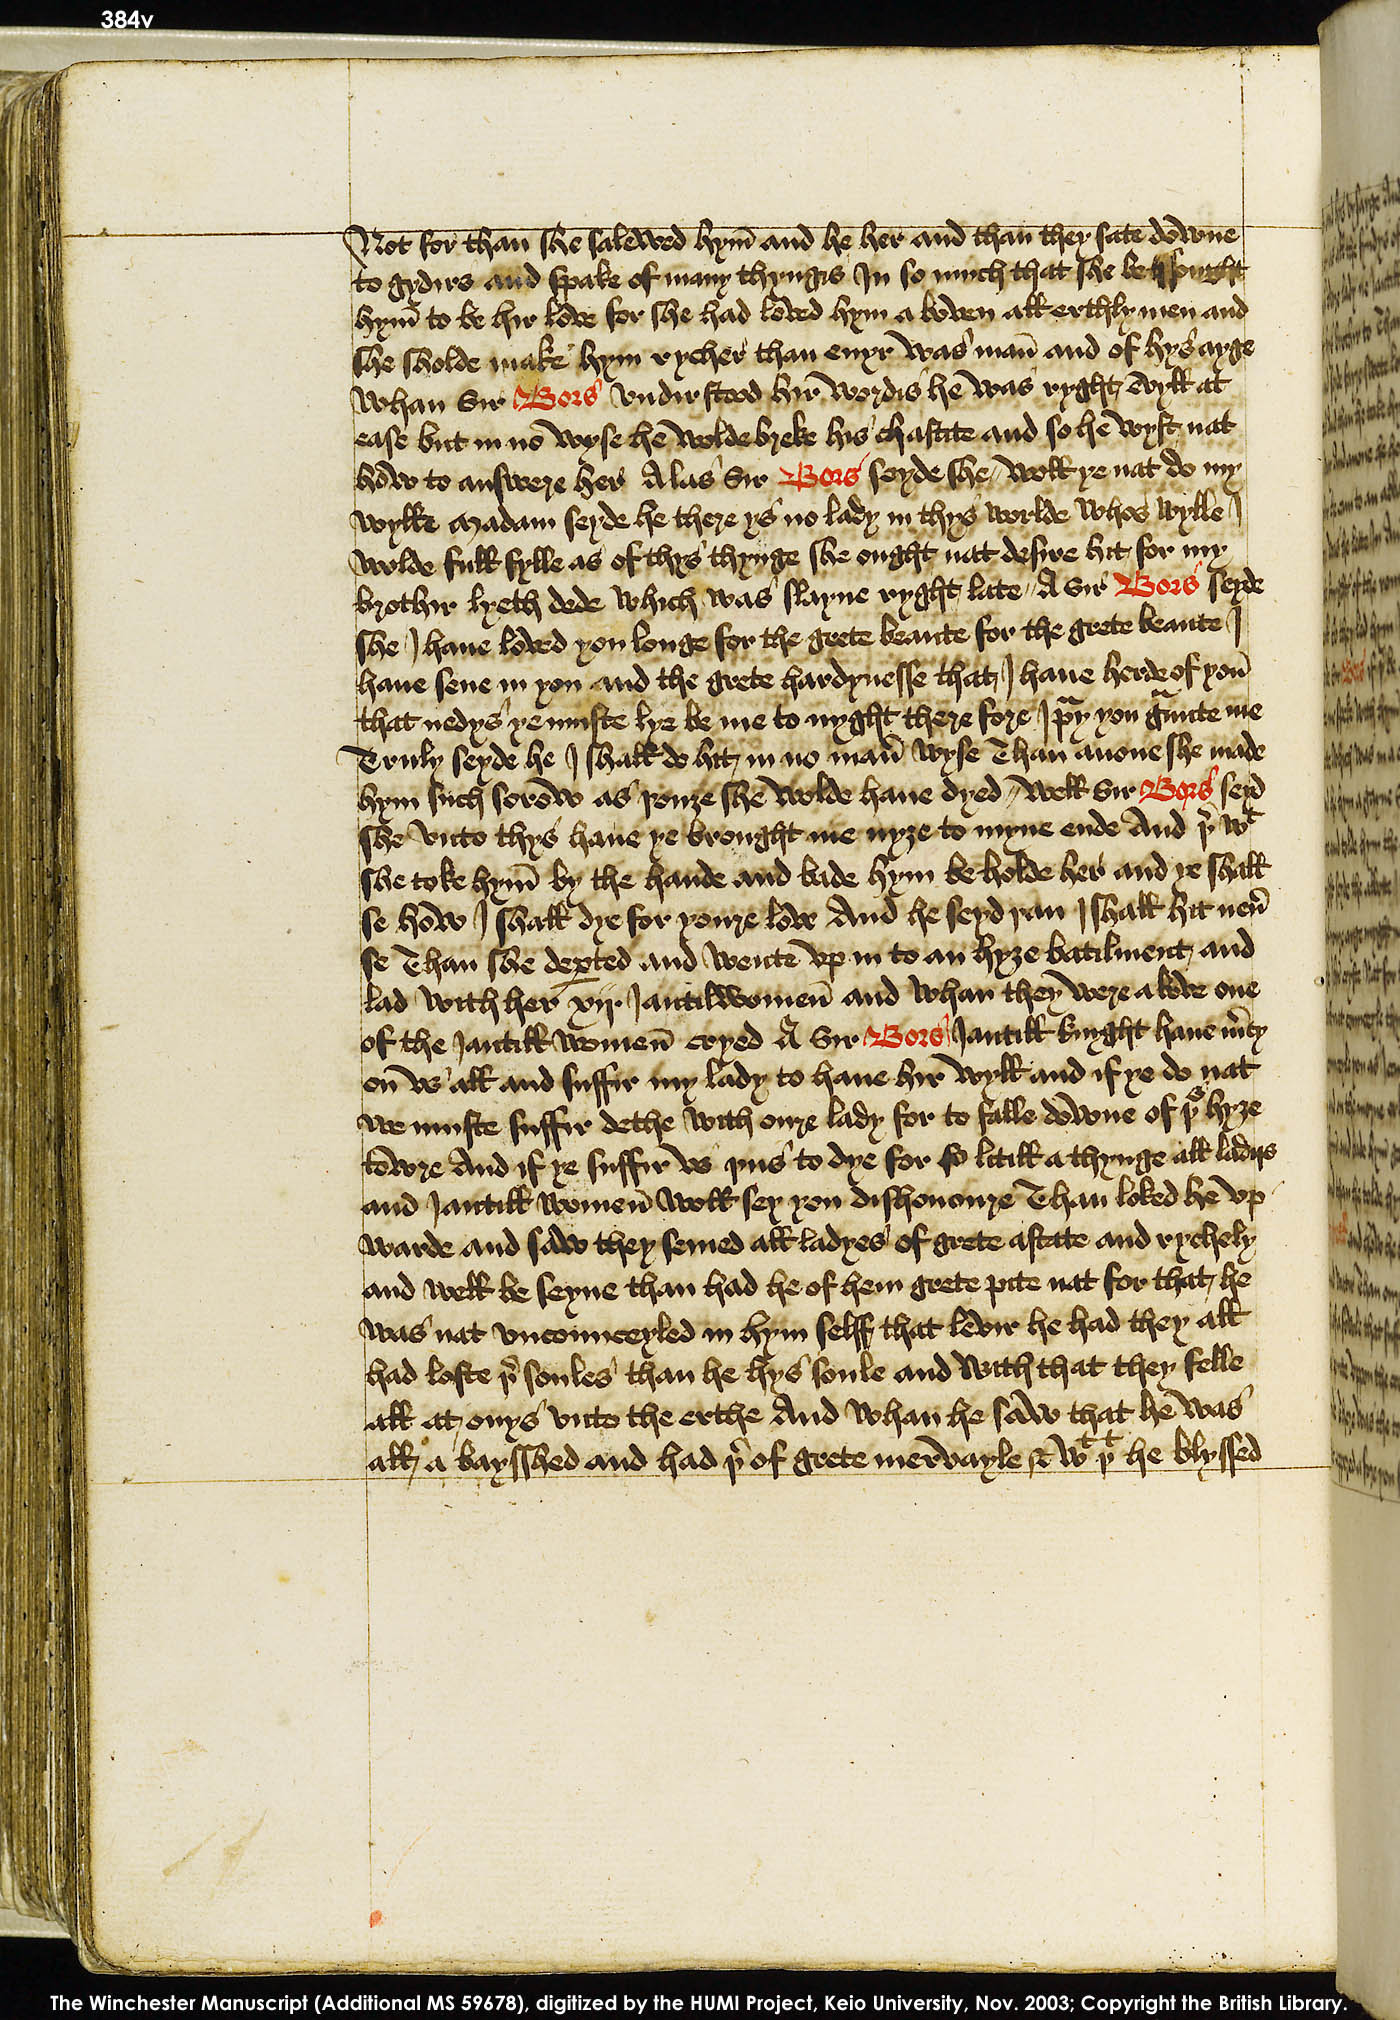 384v
Not for than she salewed hym̄ and he her and than they sate downe
to gydirs and spake of many thyngis In so much that she be sought
hym̄ to be hir love for she had loved hym a boven all erthly men and
she sholde make hym rycher than evyr was man̄ and of hys ayge
Whan Sir Bors undirstood hir wordis he was ryght evyll at
ease but in no wyse he wolde breke his chastite and so he wyst nat
how to answere her Alas Sir Bors seyde she woll ye nat do my
wylle Madam seyde he there ys no lady in thys worlde whos wylle I
wolde full fylle as of thys thynge she ought nat desire hit for my
brothir lyeth dede which was slayne ryght late A Sir Bors seyde
she I have loved you longe for the grete beaute for the grete beaute I
have sene in you and the grete hardynesse that I have herde of you
that nedys ye muste lye be me to nyght there fore I pray you graunte me
Truly seyde he I shall do hit in no man̄ wyse Than anone she made
hym such sorow as youze she wolde have dyed Well Sir Bors seyd
she unto thys have ye brought me nyze to myne ende And þer wt
she toke hym̄ by the hande and bade hym be holde her and ye shall
se how I shall dye for youre love And he seyd yan I shall hit nev̄
se Than she dep̱ted and wente up in to an hyze batilment and
lad with her xij Jantilwomen̄ and whan they were above one
of the Jantill women̄ cryed A Sir Bors Jantill knyght have m̄cy
on us all and suffir my lady to have hir wyll and if ye do nat
we muste suffir dethe with oure lady for to falle downe of þs hyze
towre And if ye suffir us yus to dye for so litill a thynge all ladys
and Jantill women̄ woll sey you dishonoure Than loked he up
warde and saw they semed all ladyes of grete astate and rychely
and well be seyne than had he of hem grete pite nat for that he
was nat uncounceyled in hym selff that levir he had they all
had loste þer soules than he hys soule and with that they felle
all at onys unto the erthe And whan he saw that he was
all a bayshed and had þer of grete mervayle & wt þt he blyssed
The Winchester Manuscript (Additional MS 59678), digitized by the HUMI Project, Keio University, Nov. 2003; Copyright the British Library.